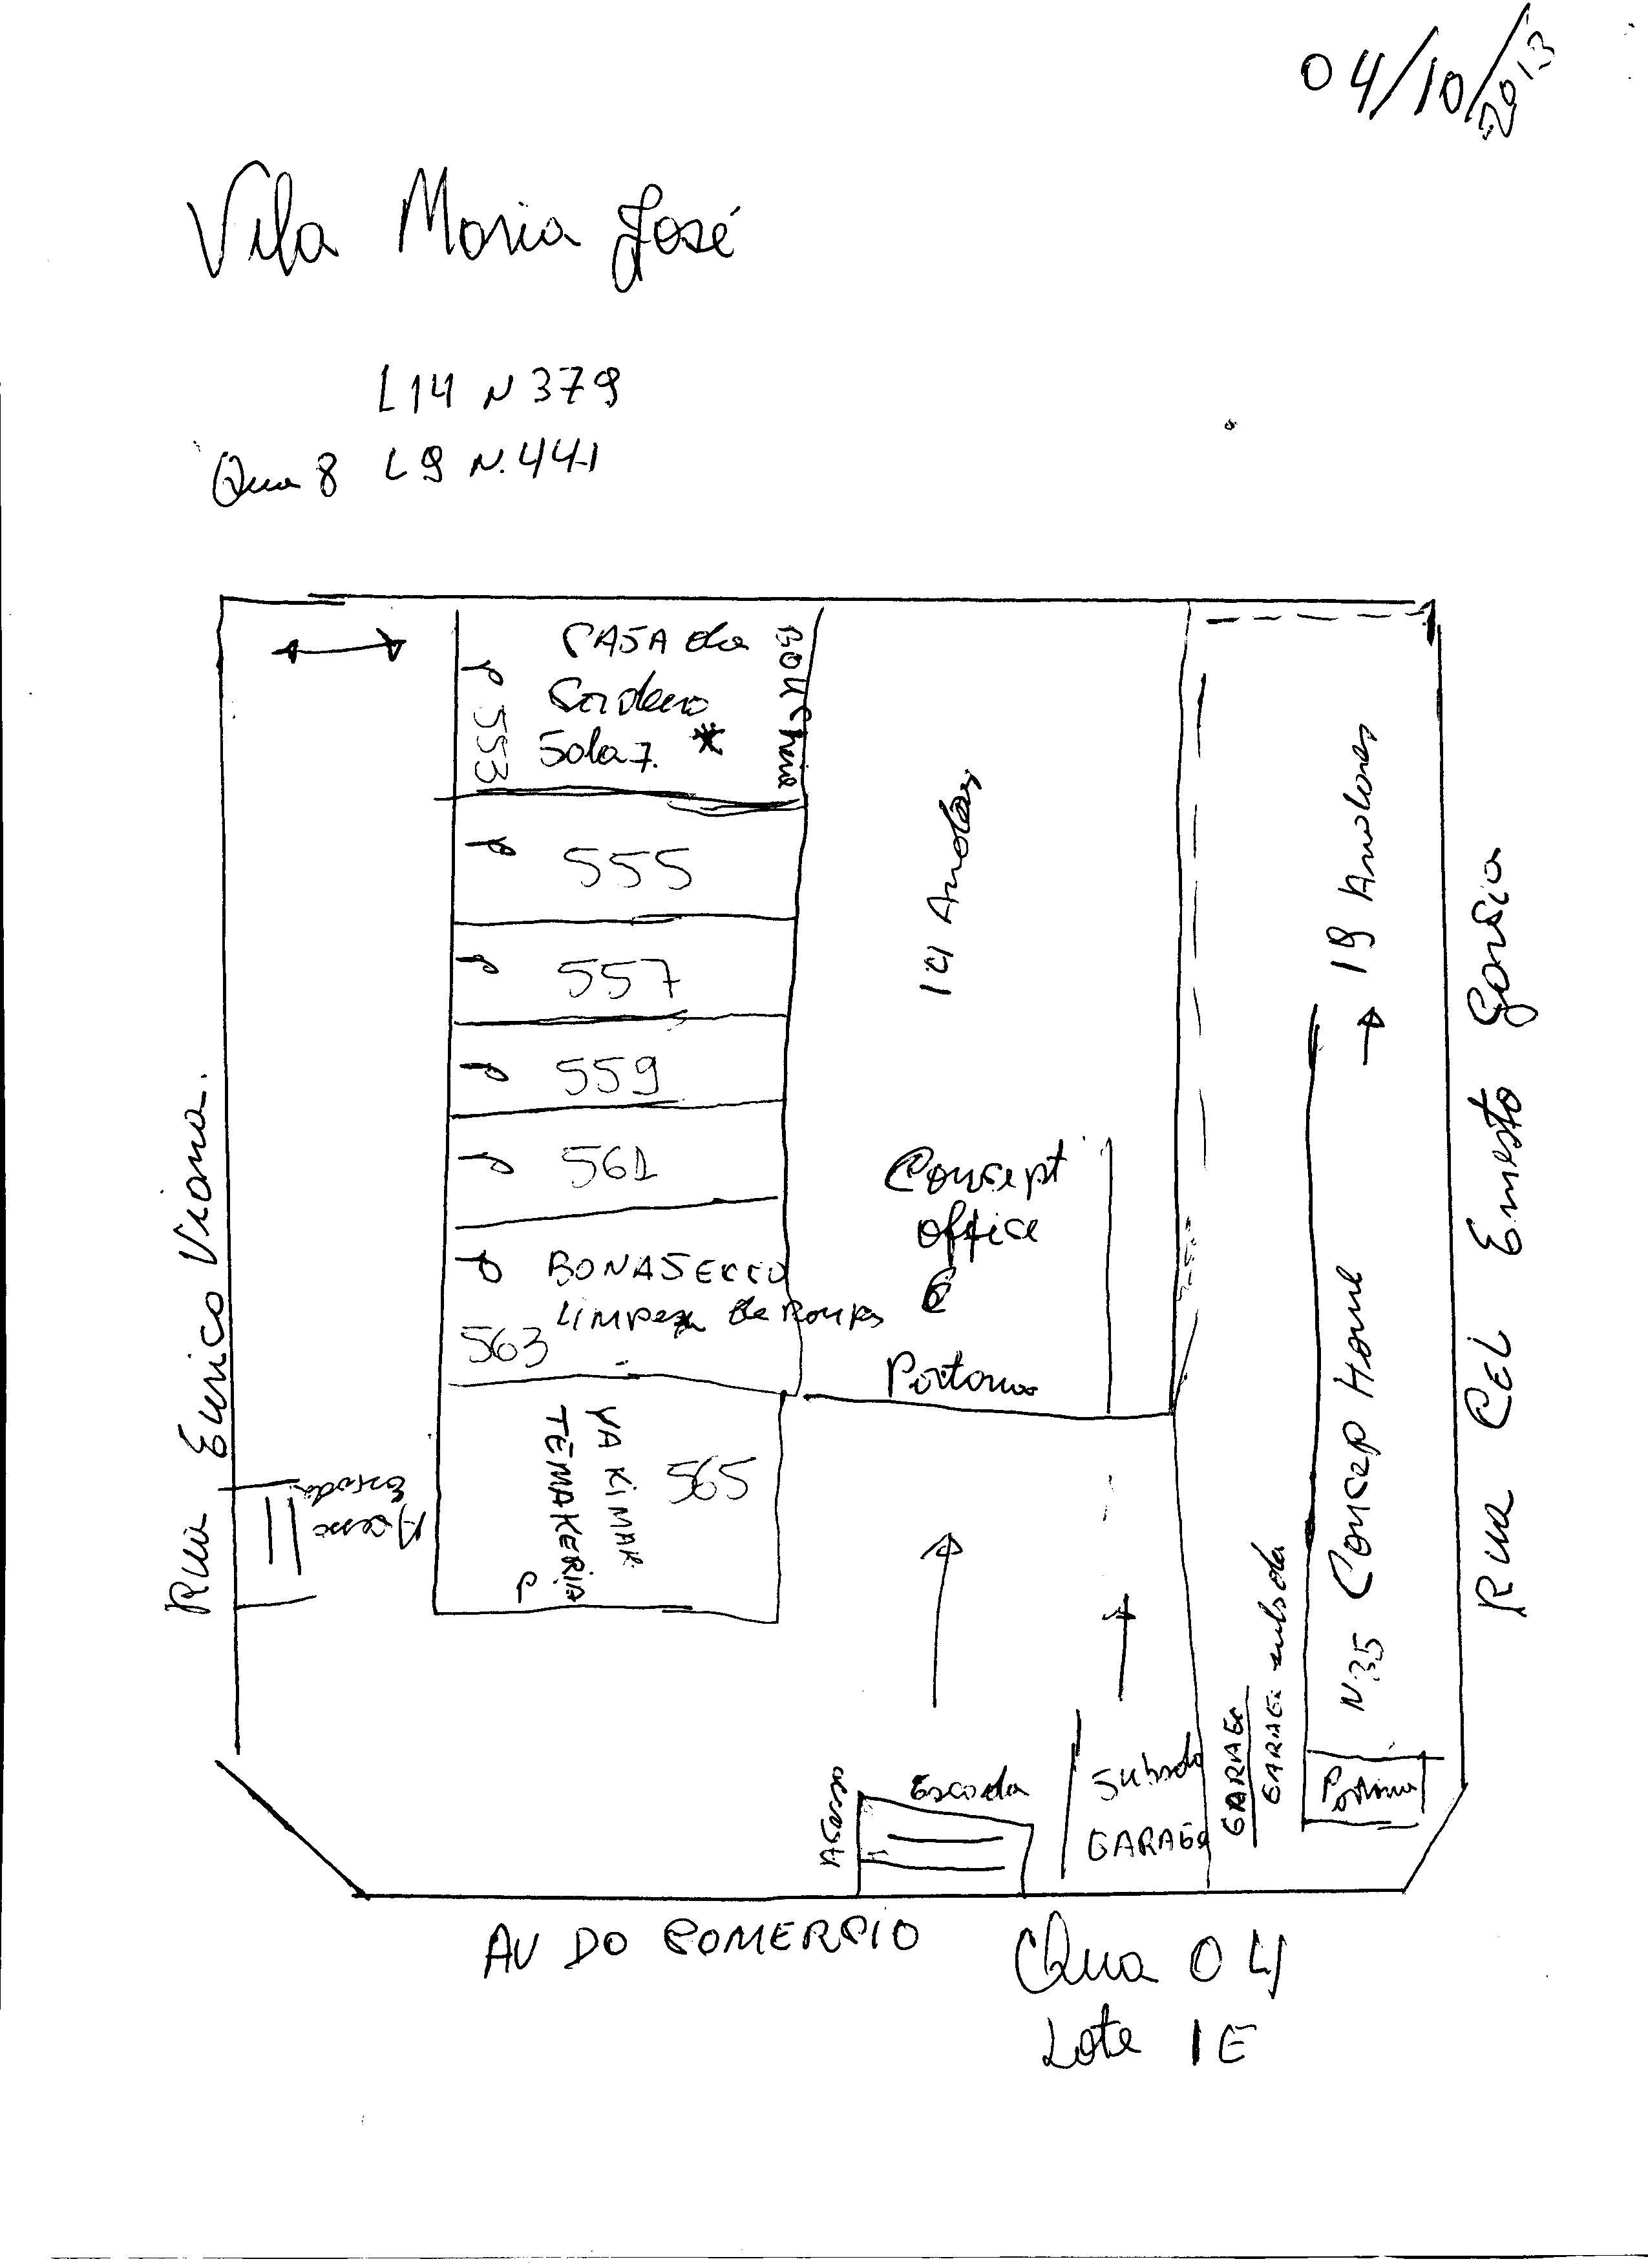 04/10/2013
Vila Maria José
L14 N 379
Qua 8 L9 N.441
CASA da
Sala 7. *
553
555
557
559
561
BONASECCO
Limpeza de Roupas
563
YAKIMAR
TEMAKERIA
565
14 Andares
Concept
office
Portaria
19 Andares
N.35 Concep Home
Portaria
GARAGE
GARAGE subsolo
Subsolo
GARAGE
Escada
Acesso
Acesso
Escada
Rua Eurico Viana.
Rua CEL Ernesto
AV DO COMERCIO
Qua 04
Lote 1E